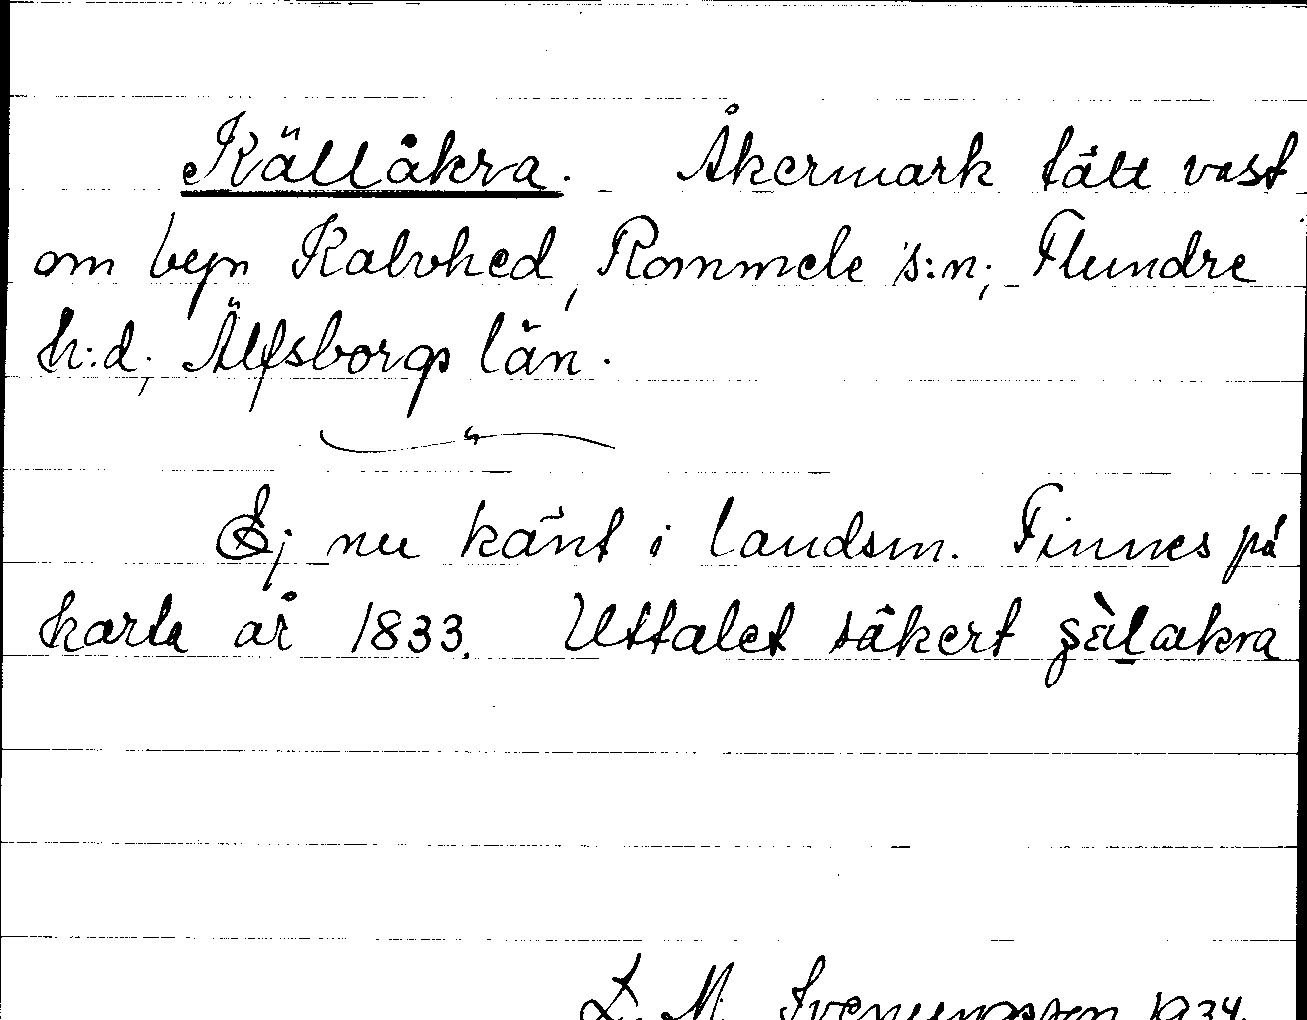 Källåkra. Åkermark tätt väst
om byn Kalvhed, Rommele s:n; Flundre
h:d; Älfsborgs län.
Ej nu känt i landsm. Finnes på
karta år 1833. Uttalet säkert
L. M. Svenungsson 1934.